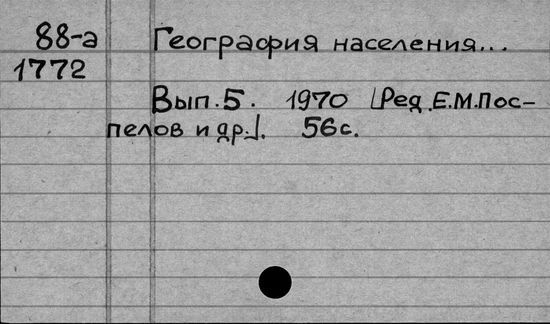 88-а География населения...
1772
Вып.5. 1970 [Ред. Е.М.Пос-
пелов и др.]. 56с.